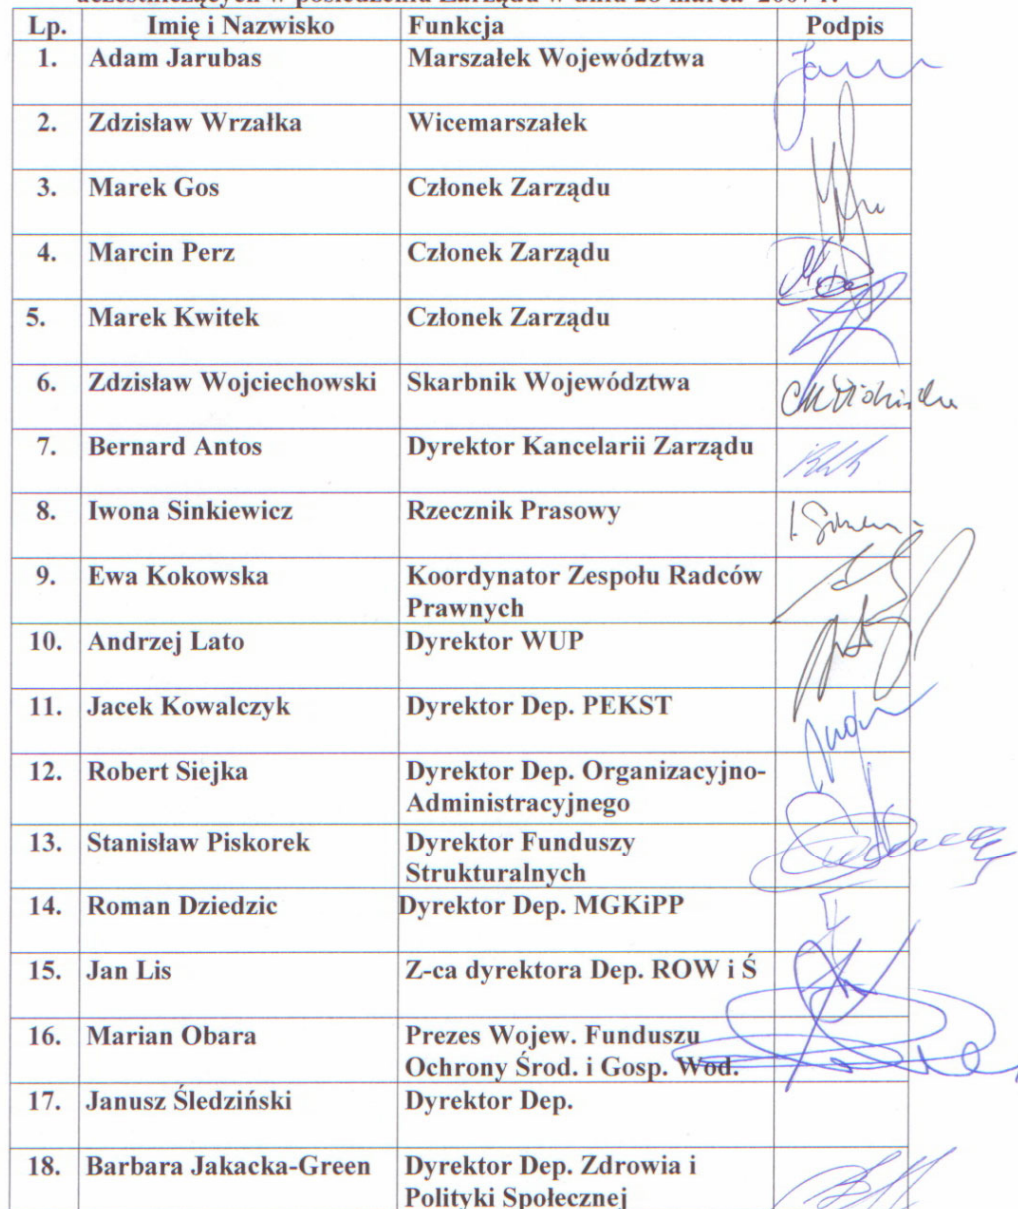 uczestniczących w posiedzeniu Zarządu w dniu 28 marca 2007 r.
Lp. Imię i Nazwisko Funkcja Podpis
1. Adam Jarubas Marszałek Województwa
2. Zdzisław Wrzałka Wicemarszałek
3. Marek Gos Członek Zarządu
4. Marcin Perz Członek Zarządu
5. Marek Kwitek Członek Zarządu
6. Zdzisław Wojciechowski Skarbnik Województwa
7. Bernard Antos Dyrektor Kancelarii Zarządu
8. Iwona Sinkiewicz Rzecznik Prasowy
9. Ewa Kokowska Koordynator Zespołu Radców
Prawnych
10. Andrzej Lato Dyrektor WUP
11. Jacek Kowalczyk Dyrektor Dep. PEKST
12. Robert Siejka Dyrektor Dep. Organizacyjno-
Administracyjnego
13. Stanisław Piskorek Dyrektor Funduszy
Strukturalnych
14. Roman Dziedzic Dyrektor Dep. MGKiPP
15. Jan Lis Z-ca dyrektora Dep. ROW i Ś
16. Marian Obara Prezes Wojew. Funduszu
Ochrony Środ. i Gosp. Wod.
17. Janusz Śledziński Dyrektor Dep.
18. Barbara Jakacka-Green Dyrektor Dep. Zdrowia i
Polityki Społecznej